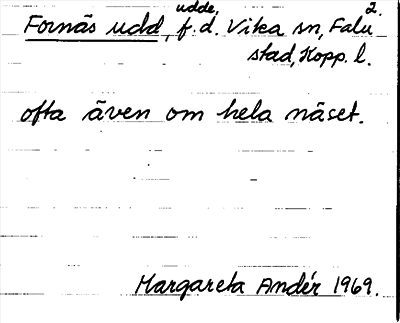 udde, 2.
Fornäs udd, f.d. Vika sn, Falu
stad, Kopp. l.
ofta även om hela näset.
Margareta Andér 1969.